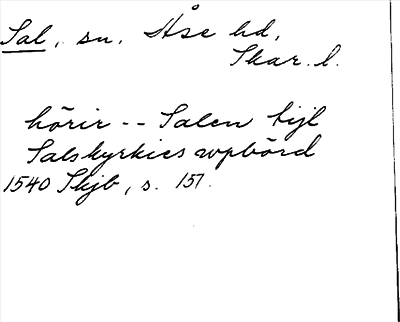 Sal, sn. Åse hd,
Skar. l.
hörir -- Salen tijl
Salskyrkies wpbörd
1540 Skjb, s. 157.